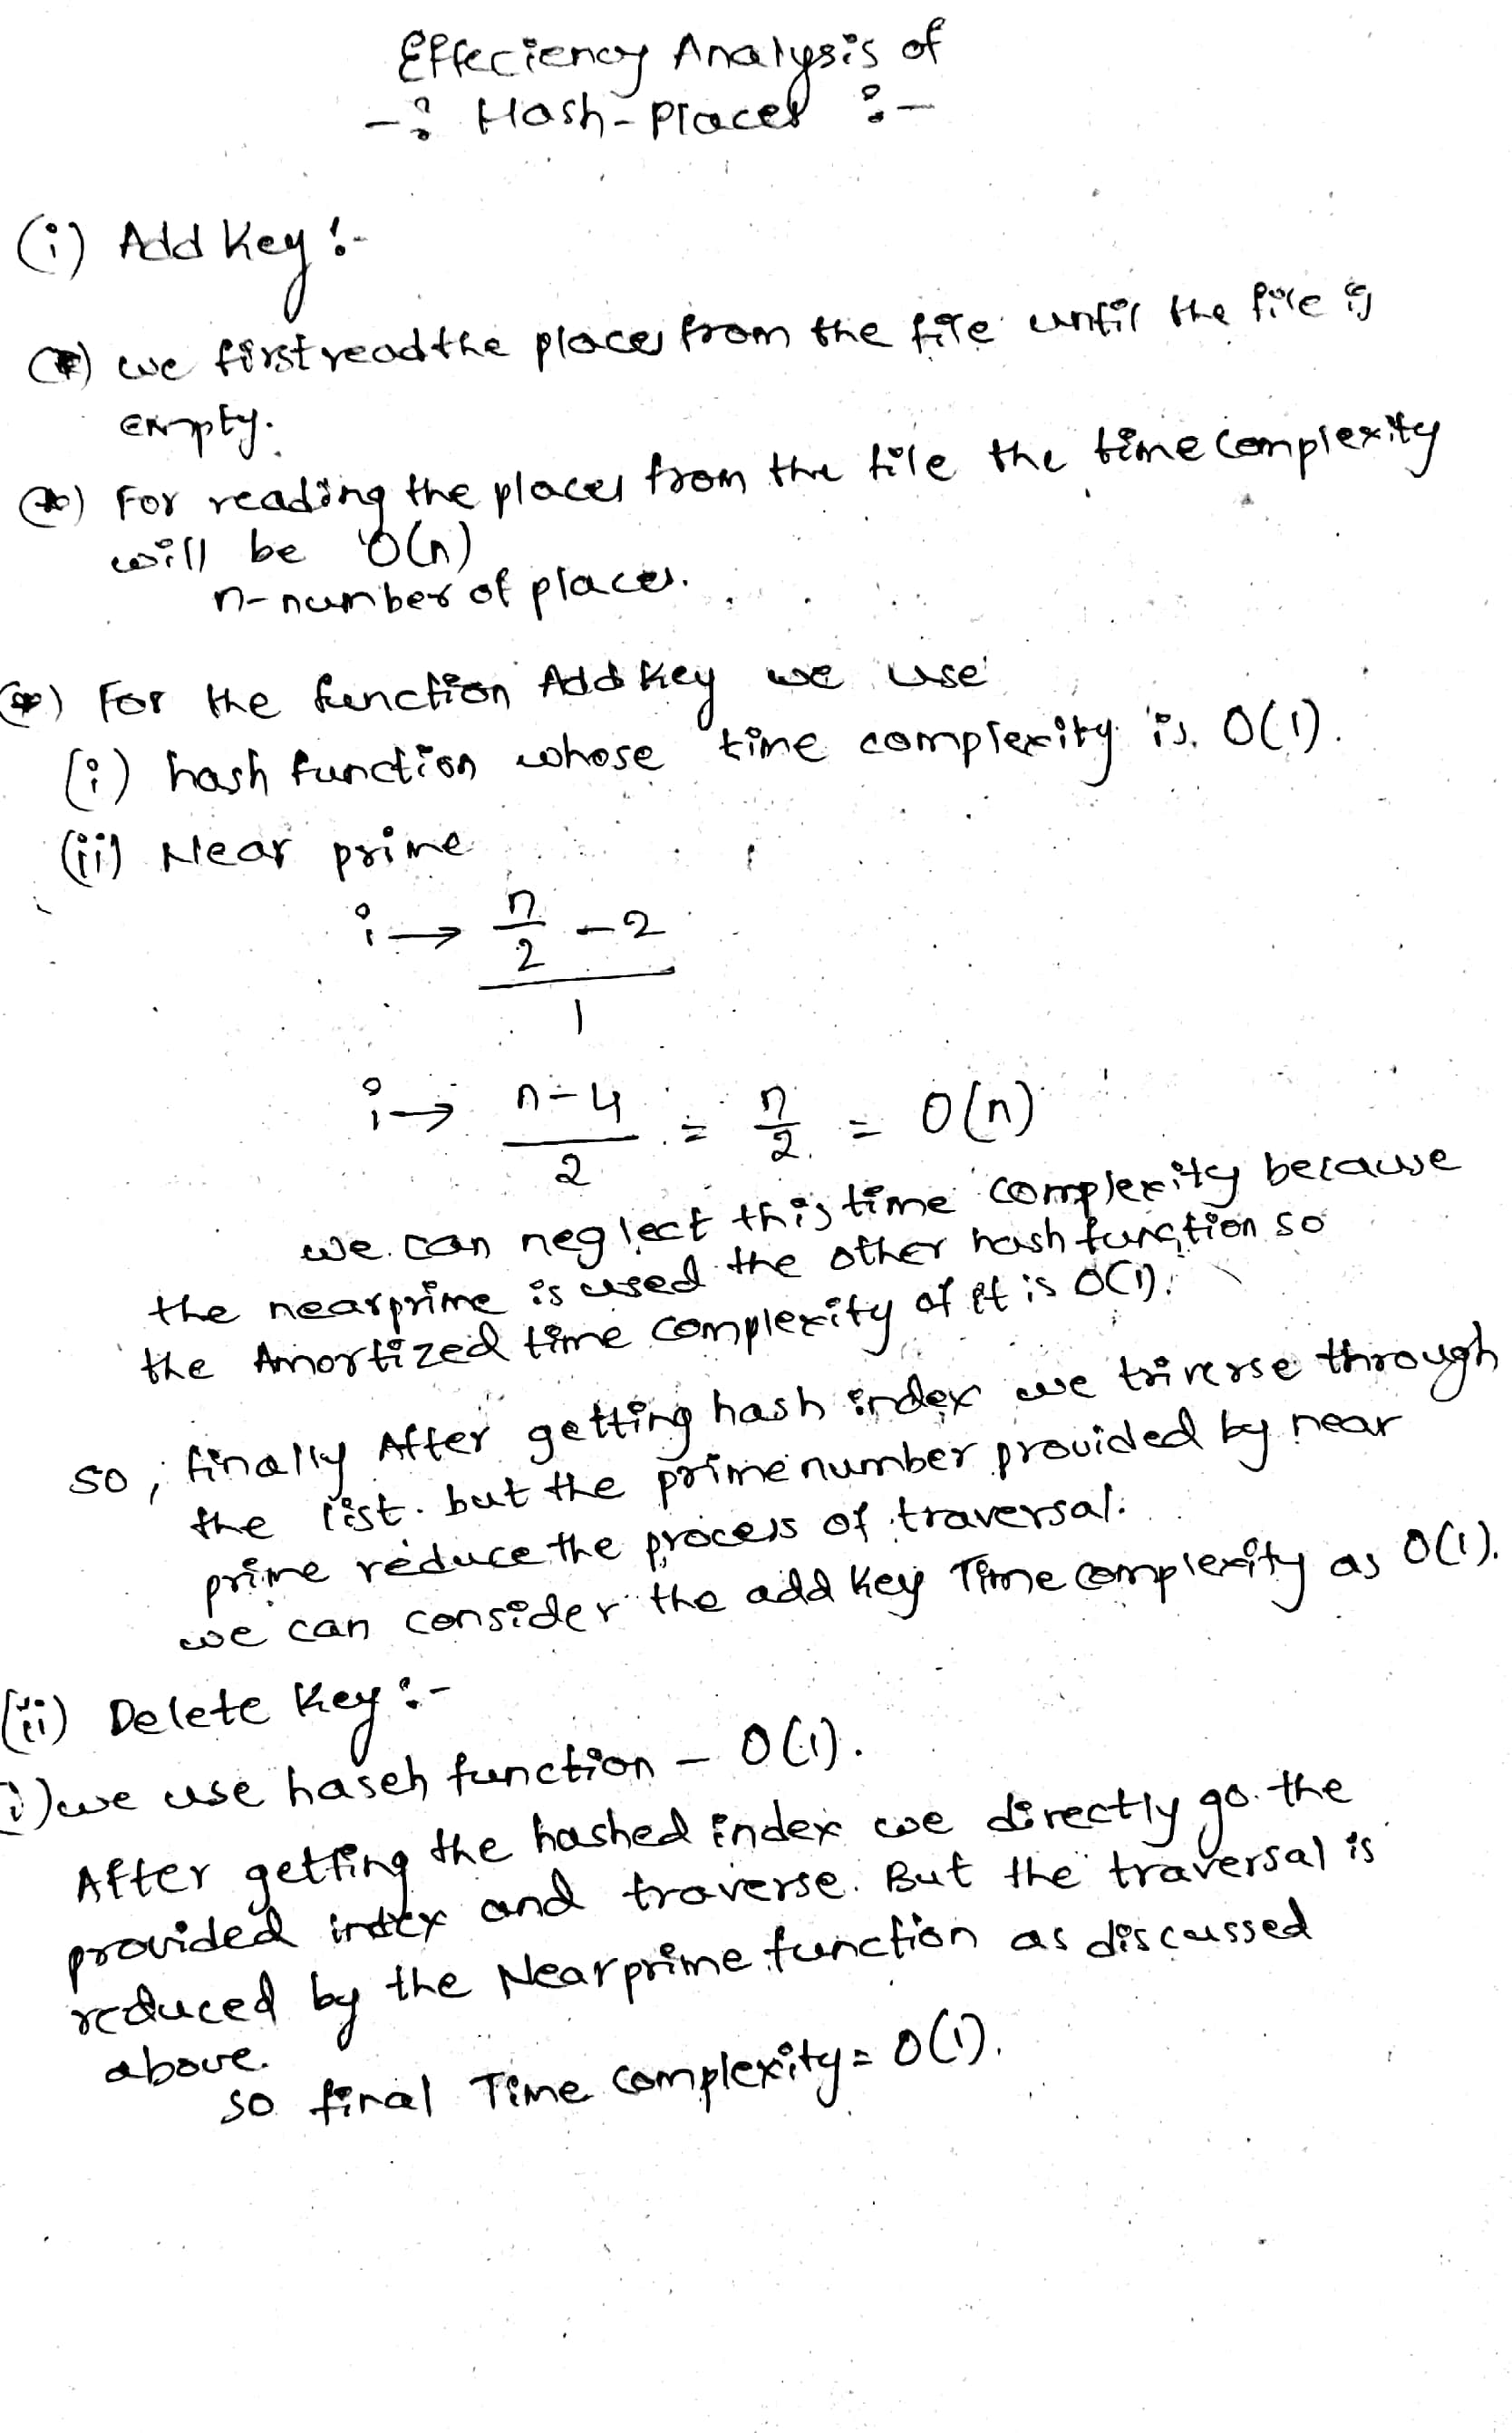 Effeciency Analysis of
-: Hash-Places :-
(i) Add Key :-
(*) we first read the places from the file until the file is
empty.
(*) For reading the places from the file the time complexity
will be O(n)
n- number of places.
(*) For the function Add Key we use
(i) hash function whose time complexity is O(1).
(ii) Near prime
i → n/2 - 2
1
i → n-4/2 = n/2 = O(n)
we can neglect this time complexity because
the nearprime is used the other hash function so
the Amortized time complexity of it is O(1).
so, finally After getting hash index we triverse through
the list. but the prime number provided by near
prime reduce the process of traversal.
we can consider the add key Time complexity as O(1).
(ii) Delete Key :-
i) we use haseh function - O(1).
After getting the hashed index we directly go the
provided index and traverse. But the traversal is
reduced by the Nearprime function as discussed
above.
so final Time complexity = O(1).